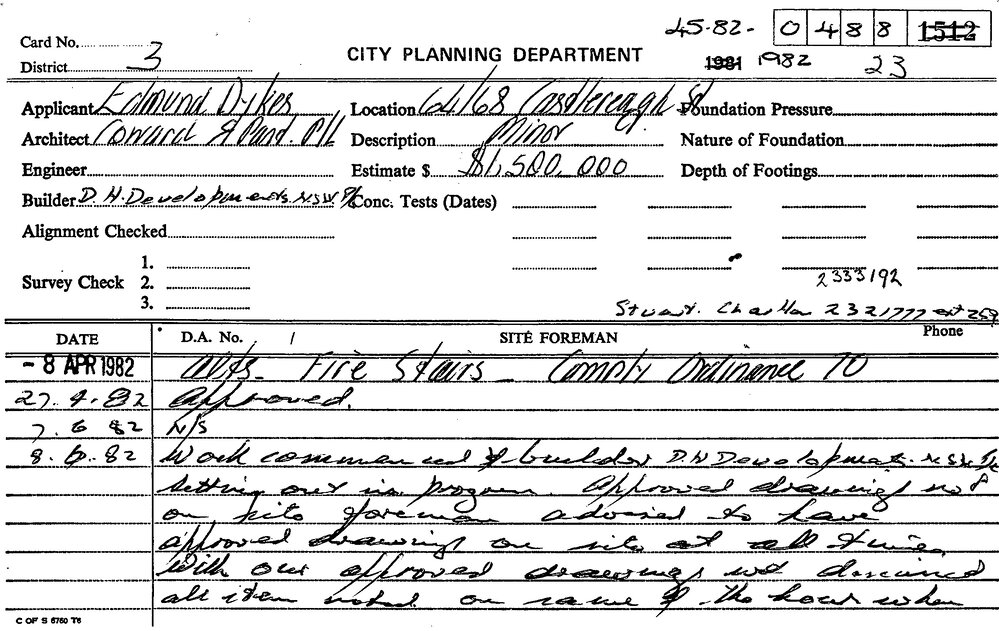 45-82- 0488 1512
Card No.
CITY PLANNING DEPARTMENT 1981 1982 23
District 3
Applicant Edmund Dykes Location 64/68 Castlereagh St Foundation Pressure
Architect Coward & Pand. P/L Description Minor Nature of Foundation
Engineer Estimate $ $1,500,000 Depth of Footings
Builder D.H. Developments N.S.W. P/L Conc. Tests (Dates)
Alignment Checked
1.
Survey Check 2. 2333192
3. Stuart. 2321777 ext 259
DATE D.A. No. / SITE FOREMAN Phone
- 8 APR 1982 Alts - Fire Stairs - Comply Ordinance 70
27.4.82 Approved.
7.6 82 N/S
8.6.82 Work commenced builder D.H Developments N.S.W.
setting out in progress. Approved drawings not
on site foreman advised to have
approved drawings on site at all times.
With our approved drawings we discussed
all item noted on same & the hour when
C OF S 6760 T6